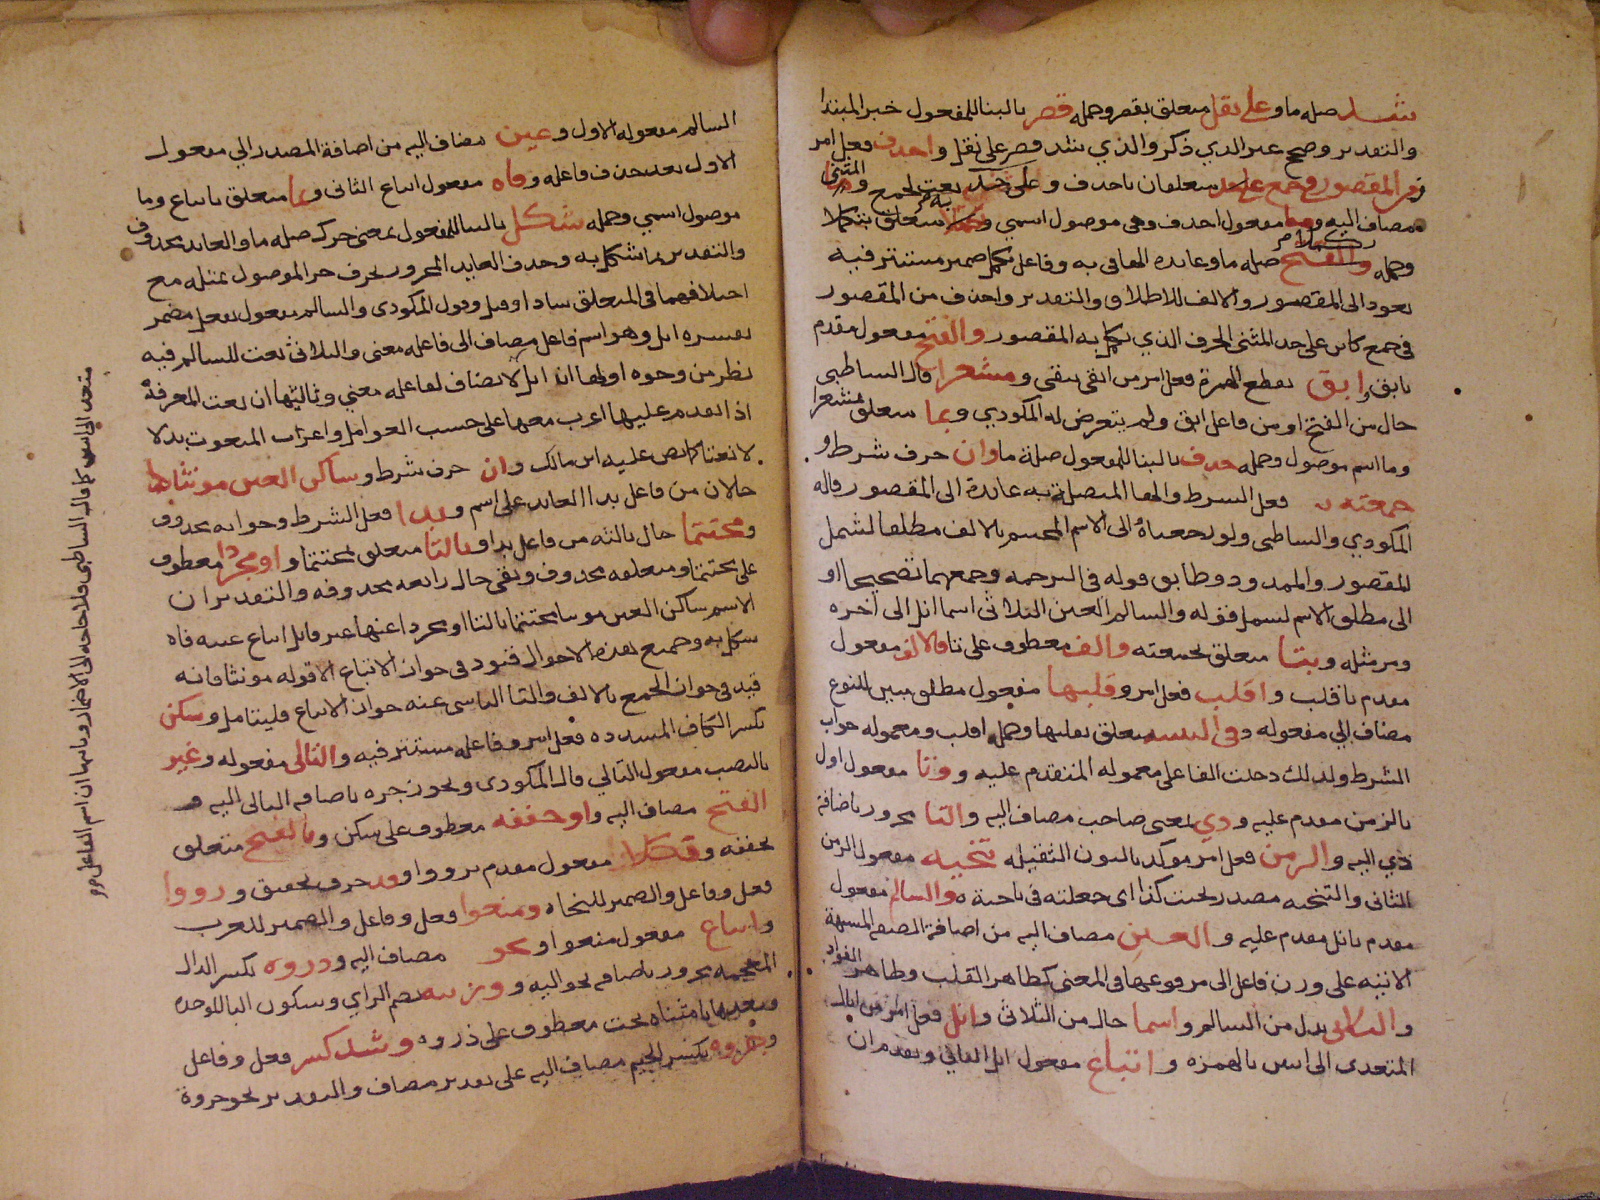 شد صله ما وعلى نقل متعلق بقصر وجملة قصر بالبنا للمفعول خبر المبتدا
والتقدير وصح غير الذي ذكر والذي شد قصر على نقل واحذف فعل امر
من المقصور في جمع على حد متعلقان باحذف وعلى حد نعت لجمع والمثنى
مضاف اليه وما مفعول احذف وهي موصول اسمي وبه متعلق بتكملا
وجملة تكملا صلة ما وعائده الها في به وفاعل تكمل ضمير مستتر فيه
يعود الى المقصور والالف للاطلاق والتقدير واحذف من المقصور
في جمع كاين على حد المثنى الحرف الذي تكمل به المقصور والفتح مفعول مقدم
بابق وابق بقطع الهمزة فعل امر من ابقى يبقى ومشعرا قال الشاطبي
حال من الفتح او من فاعل ابق ولم يتعرض له المكودي وبما متعلق بمشعرا
وما اسم موصول وجملة حذف بالبنا للمفعول صلة ما وان حرف شرط و
جمعته فعل الشرط والها المتصلة به عائدة الى المقصور قاله
المكودي والشاطبي ولو رجعناه الى الاسم المختتم بالالف مطلقا لشمل
المقصور والممدود وطابق قوله في الترجمة وجمعهما تصحيحا او
الى مطلق الاسم ليشمل قوله والسالم العين الثلاثي اسما انل الى اخره
ومر مثله وبتا متعلق بجمعته والف معطوف على تا فالالف مفعول
مقدم باقلب واقلب فعل امر وقلبها مفعول مطلق مبين للنوع
مضاف الى مفعوله وفي التثنية متعلق بقلبها وجملة اقلب ومعموله جواب
الشرط ولذلك دخلت الفا على معموله المتقدم عليه وتا مفعول اول
بالزمن مقدم عليه وذي بمعنى صاحب مضاف اليه والتا مجرور باضافة
ذي اليه والزمن فعل امر موكد بالنون الثقيلة تنحيه مفعول الزمن
الثاني والتنحيه مصدر نحيت كذا اي جعلته في ناحية والسالم مفعول
مقدم بانل مقدم عليه والعين مضاف اليه من اضافة الصفة المشبهة
الاتيه على وزن فاعل الى مرفوعها في المعنى كطاهر القلب وطاهر الفواد
والثلاثي بدل من السالم واسما حال من الثلاثي وانل فعل امر من انال
المتعدي الى اثنين بالهمزة واتباع مفعول انل الثاني وتقدم ان
السالم مفعوله الاول وعين مضاف اليه من اضافة المصدر الى مفعوله
الاول بعد حذف فاعله وفاه مفعول اتباع الثاني وبما متعلق باتباع وما
موصول اسمي وجملة شكل بالبنا للمفعول بمعنى حرك صلة ما والعايد محذوف
والتقدير بما شكل به وحذف العايد المجرور بحرف جر الموصول بمثله مع
اختلافهما في المتعلق شاذ او قليل وقول المكودي والسالم مفعول بفعل مضمر
يفسره انل وهو اسم فاعل مضاف الى فاعله معنى والثلاثي نعت للسالم فيه
نظر من وجوه اولها ان انل لا يضاف لفاعله معنى وثانيها ان نعت المعرفة
اذا تقدم عليها اعرب معها على حسب العوامل واعراب المنعوت بدلا
لا نعتا كما نص عليه ابن مالك وان حرف شرط وساكن العين مونثا
حالان من فاعل بدا العايد على اسم وبدا فعل الشرط وجوابه محذوف
ومختتما حال ثالثه من فاعل بدا وبالتا متعلق بمختتما او مجردا معطوف
على مختتما ومتعلقه محذوف وبقي حال رابعه محذوفه والتقدير ان
الاسم ساكن العين مونثا مختتما بالتا او مجردا عنها غير قابل اتباع عينه فاه
شكل به وجميع هذه الاحوال قيود في جواز الاتباع الا قوله مونثا فانه
قيد في جواز الجمع بالالف والتا الناشي عنه جواز الاتباع فليتامل وسكن
بكسر الكاف المشدده فعل امر وفاعله مستتر فيه والتالي مفعوله وغير
بالنصب مفعول التالي قال المكودي ويجوز جره باضافة التالي اليه و
الفتح مضاف اليه واو خففه معطوف على سكن وبالفتح متعلق
بخففه وفكلا مفعول مقدم برووا وقد حرف تحقيق ورووا
فعل وفاعل والضمير للنحاه ومنعوا فعل وفاعل والضمير للعرب
واتباع مفعول منعوا ونحو مضاف اليه وذروه بكسر الذال
المعجمه مجرور باضافة نحو اليه وزبيه بضم الزاي وسكون البا الموحده
وبعدها يا مثناه تحت معطوف على ذروه وشذ كسر فعل وفاعل
وجروه بكسر الجيم مضاف اليه على تقدير مضاف والتقدير نحو جروة
متعد الى اثنين كما قال الشاطبي فلا حاجة الى الاضمار وثالثها ان اسم الفاعل